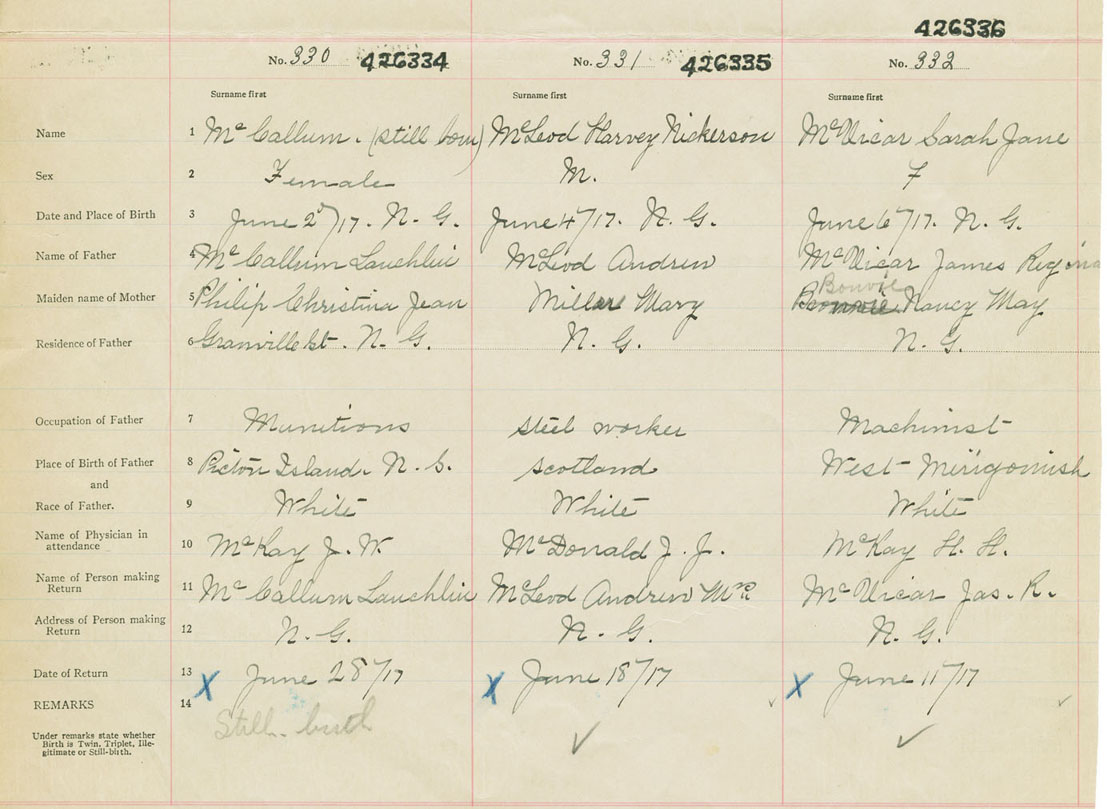 426336
No. 330 426334 No. 331 426335 No. 332
Surname first Surname first Surname first
Name 1 McCallum. (still born) McLeod Harvey Nickerson McVicar Sarah Jane
Sex 2 Female M. F
Date and Place of Birth 3 June 2nd/17. N. G. June 4/17. N. G. June 6/17. N. G.
Name of Father 4 McCallum Lauchlin McLeod Andrew McVicar James Regina
Bonvie
Maiden name of Mother 5 Philip Christina Jean Millar Mary Nancy May
Residence of Father 6 Granville st. N. G. N. G. N. G.
Occupation of Father 7 Munitions steel worker Machinist
Place of Birth of Father 8 Pictou Island. N. S. Scotland West Merigomish
and
Race of Father. 9 White White White
Name of Physician in
attendance 10 McKay J. W. McDonald J. J. McKay H. H.
Name of Person making
Return 11 McCallum Lauchlin McLeod Andrew Mrs. McVicar Jas. R.
Address of Person making
Return 12 N. G. N. G. N. G.
Date of Return 13 X June 28/17 X June 18/17 X June 11/17
REMARKS 14 Still-birth
Under remarks state whether
Birth is Twin, Triplet, Ille-
gitimate or Still-birth.